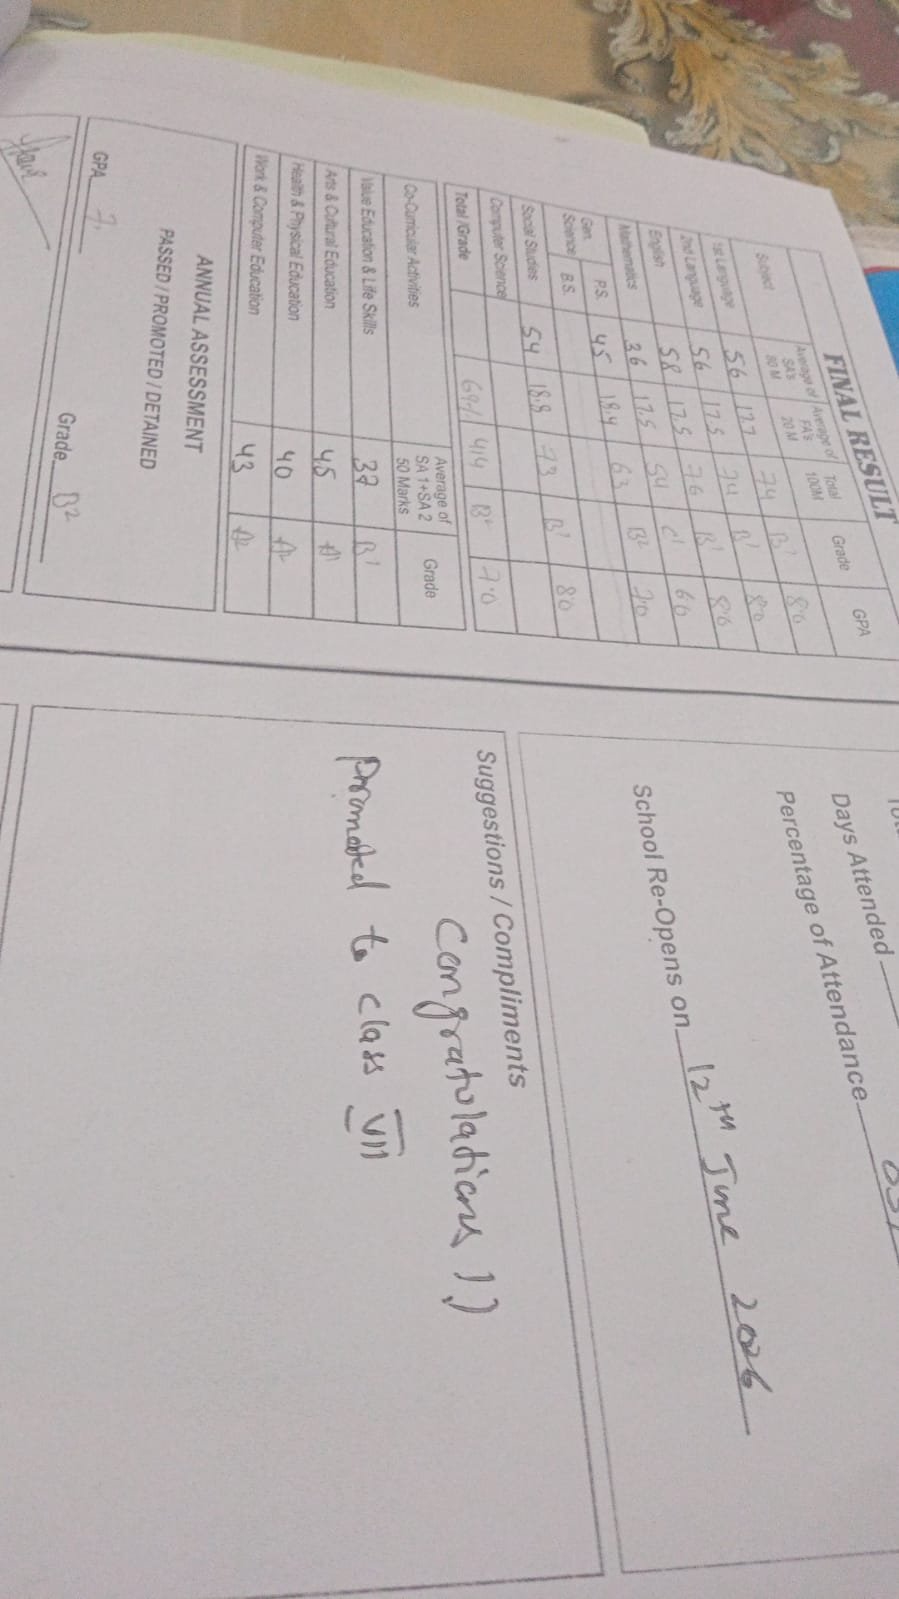 FINAL RESULT
Subject Average of SA's 80 M Average of FA's 20 M Total 100M Grade GPA
1st Language 56 17.7 74 B1 8.0
2nd Language 56 17.5 74 B1 8.0
English 58 17.5 76 B1 8.0
Mathematics 36 17.5 54 C1 6.0
Gen. Science P.S. 45 18.4 63 B2 7.0
B.S.
Social Studies 54 18.8 73 B1 8.0
Computer Science
Total /Grade 69% 414 B2 7.0
Co-Curricular Activities Average of SA 1+SA 2 50 Marks Grade
Value Education & Life Skills 37 B1
Arts & Cultural Education 45 A1
Health & Physical Education 40 A2
Work & Computer Education 43 A2
ANNUAL ASSESSMENT
PASSED / PROMOTED / DETAINED
GPA 7. Grade B2
Days Attended
Percentage of Attendance
School Re-Opens on 12th June 2026
Suggestions / Compliments
Congratulations !!
Promoted to class VII